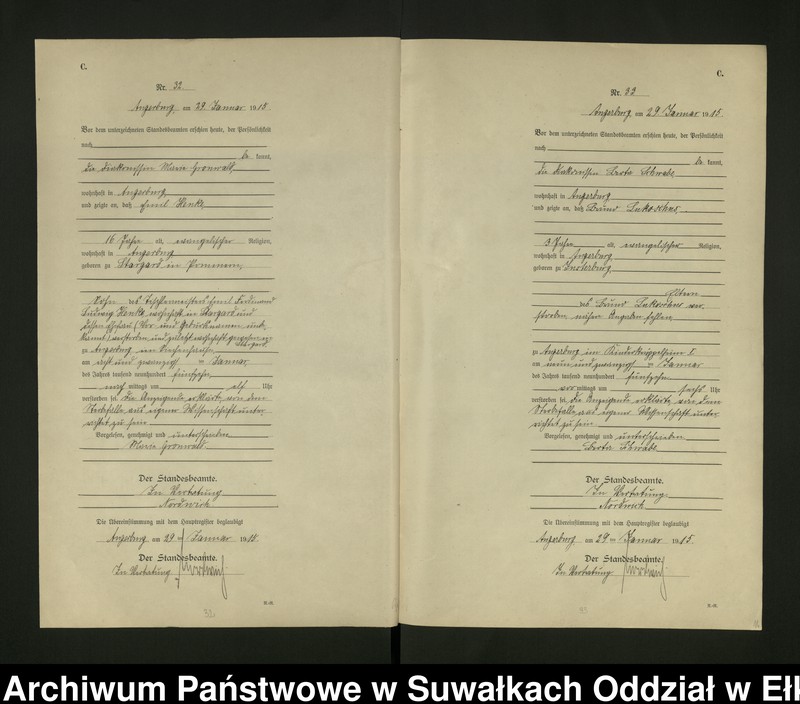 C.
Nr. 32
Angerburg am 29 Januar 1915.
Vor dem unterzeichneten Standesbeamten erschien heute, der Persönlichkeit
nach
be kannt,
die Diakonissin Marie Gronwald,
wohnhaft in Angerburg
und zeigte an, daß Emil Henke,
16 Jahre alt, evangelischer Religion,
wohnhaft in Angerburg
geboren zu Stargard in Pommern,
Sohn des Tischlermeisters Emil Ferdinand
Ludwig Henke, wohnhaft in Stargard und
dessen Ehefrau (Vor- und Geburtsnamen unbe-
kannt) verstorben und zuletzt wohnhaft gewesen in
Stargard
zu Angerburg im
am acht und zwanzigsten Januar
des Jahres tausend neunhundert fünfzehn
nach mittags um elf Uhr
verstorben sei. Die Anzeigende erklärte, von dem
Sterbefalle aus eigener Wissenschaft unter-
richtet zu sein.
Vorgelesen, genehmigt und unterschrieben
Marie Gronwald
Der Standesbeamte.
In Vertretung
Nordwich
Die Übereinstimmung mit dem Hauptregister beglaubigt
Angerburg am 29 ten Januar 1915.
Der Standesbeamte.
In Vertretung
C.
Nr. 33
Angerburg am 29 Januar 1915
Vor dem unterzeichneten Standesbeamten erschien heute, der Persönlichkeit
nach
be kannt,
die Diakonissin Berta Schwabe,
wohnhaft in Angerburg
und zeigte an, daß Bruno
3 Jahre alt, evangelischer Religion,
wohnhaft in Angerburg
geboren zu Insterburg,
Eltern
des Bruno ver-
storben, nähere Angaben fehlen
zu Angerburg im Kinderkrüppelheim
am neun und zwanzigsten Januar
des Jahres tausend neunhundert fünfzehn
vor mittags um sechs Uhr
verstorben sei. Die Anzeigende erklärte, von dem
Sterbefalle aus eigener Wissenschaft unter-
richtet zu sein.
Vorgelesen, genehmigt und unterschrieben
Berta Schwabe
Der Standesbeamte.
In Vertretung
Nordwich
Die Übereinstimmung mit dem Hauptregister beglaubigt
Angerburg am 29 ten Januar 1915.
Der Standesbeamte.
In Vertretung
Archiwum Państwowe w Suwałkach Oddział w Ełk